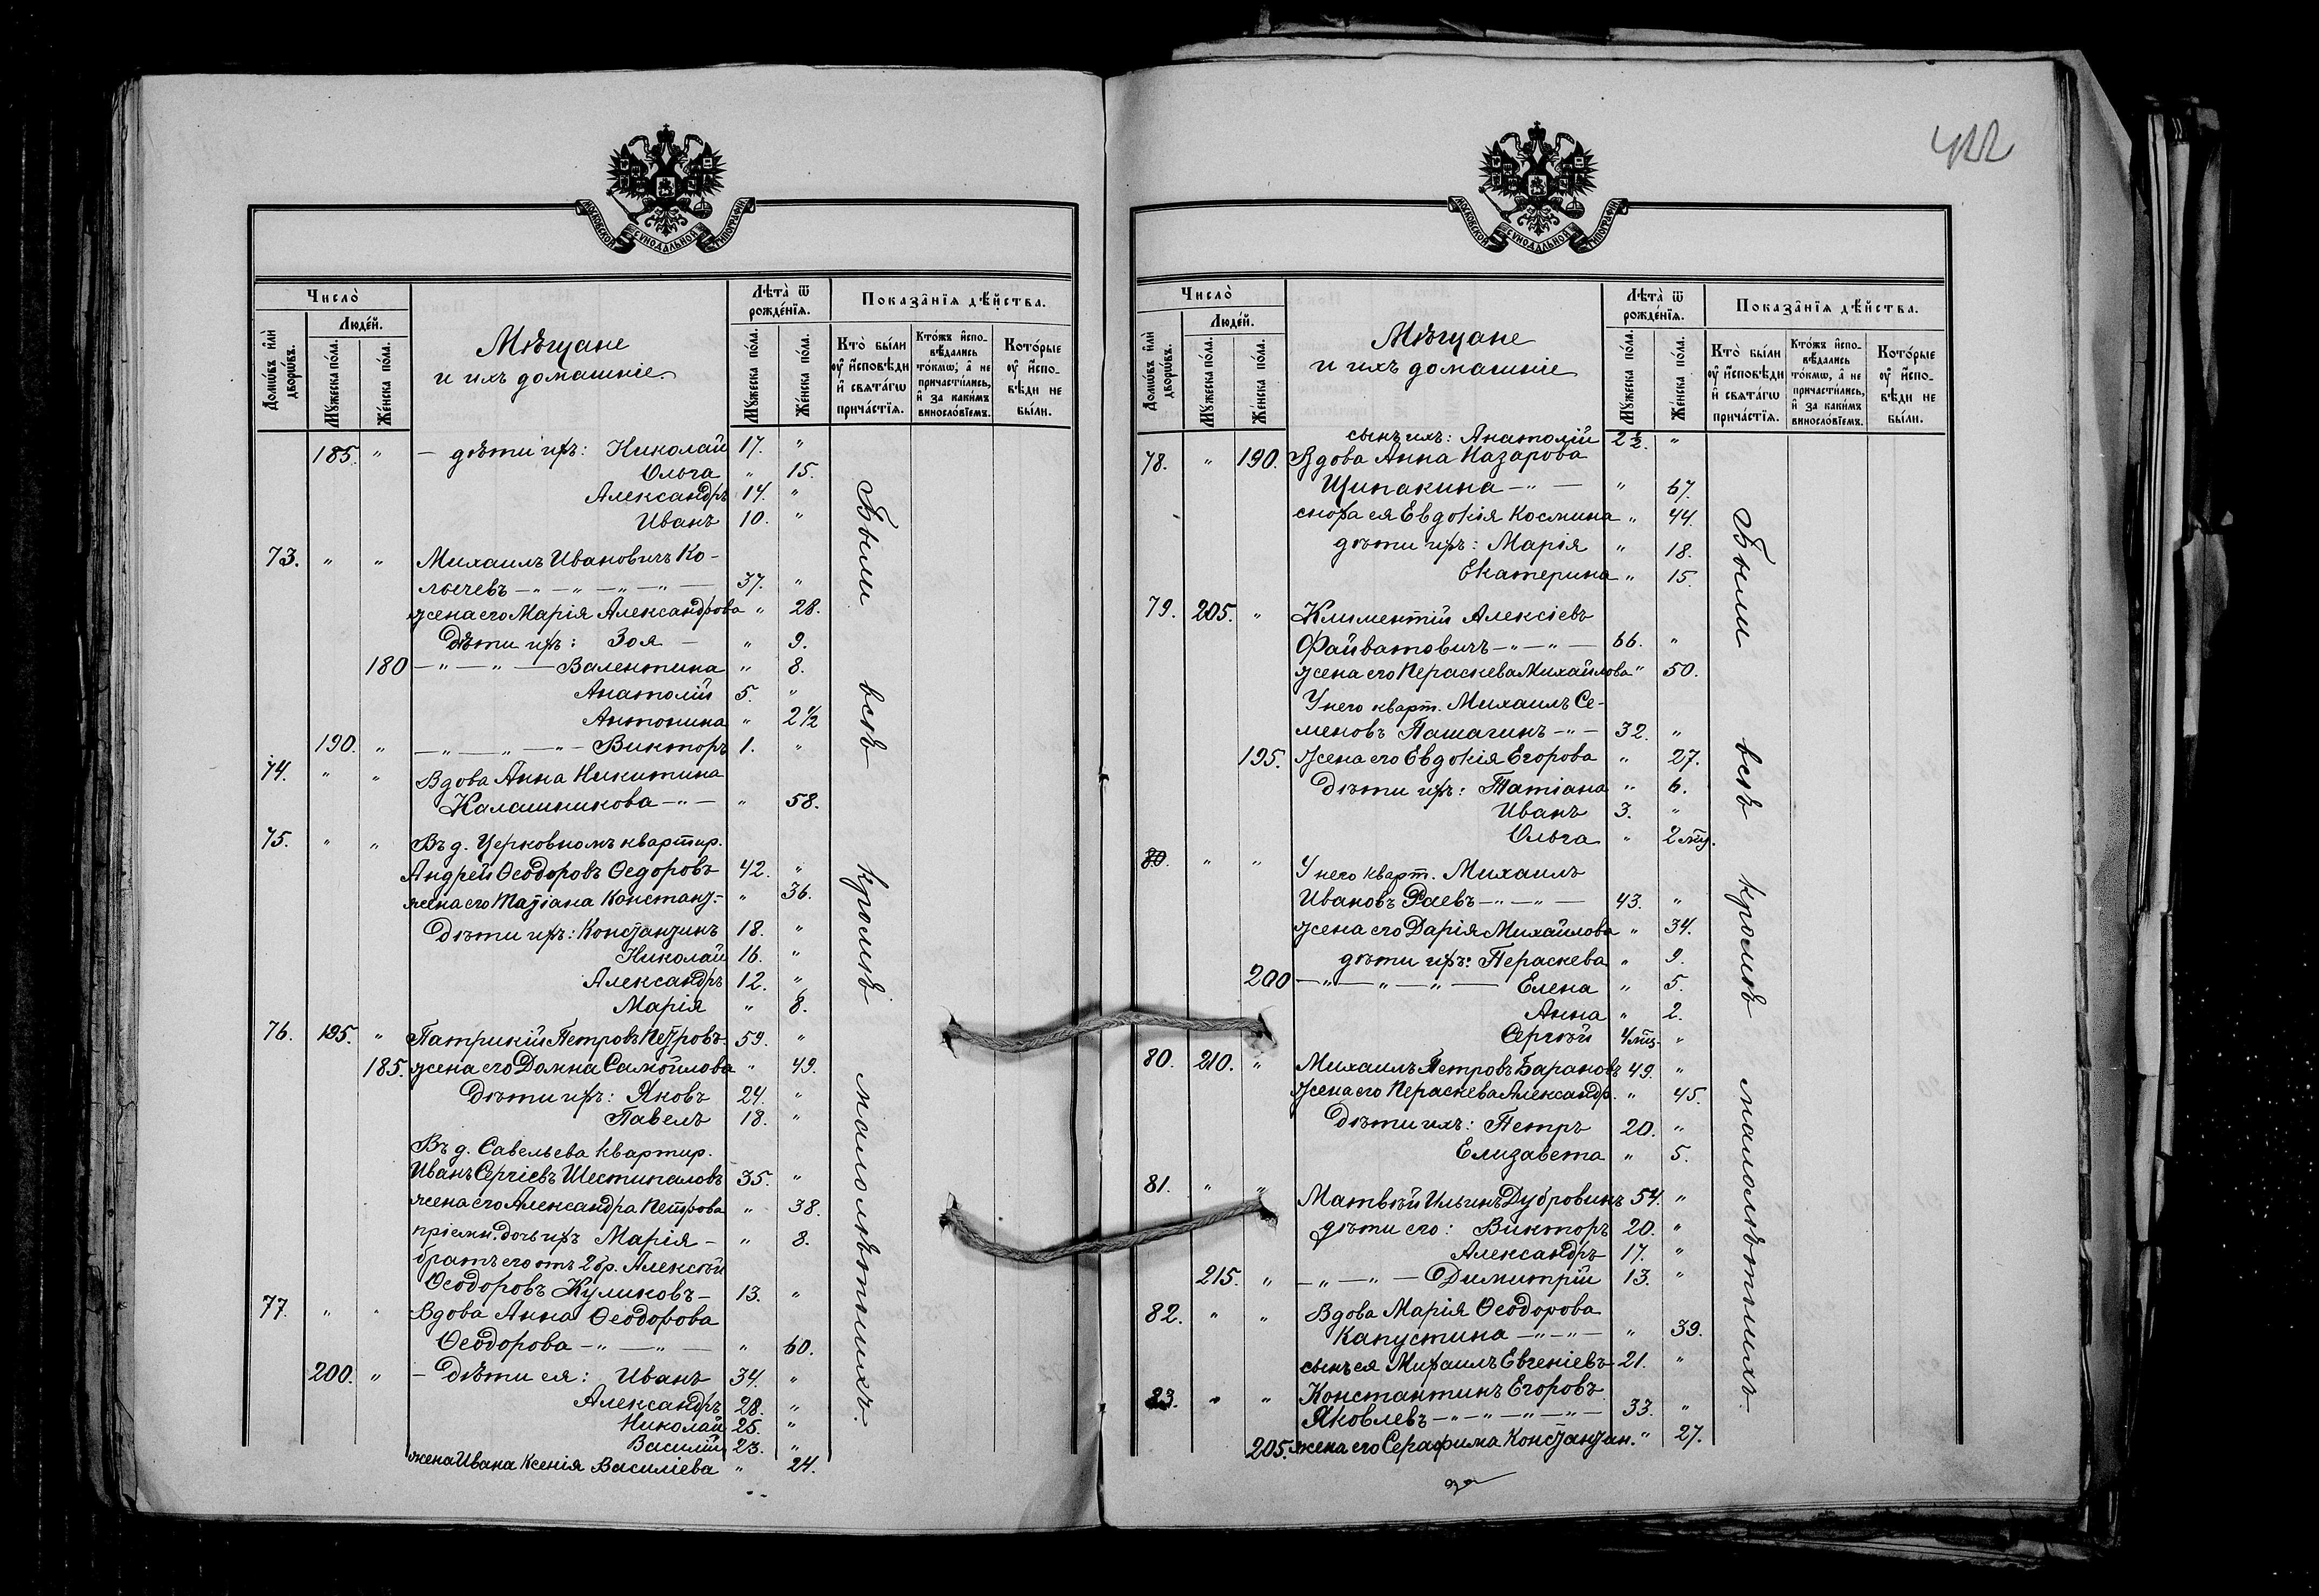 422
МОСКОВСКОЙ СѴНОДАЛЬНОЙ ТИПОГРАФІИ
Число̀
Домѡвъ и҆лѝ дворѡ́въ.
Люде́й.
Мꙋ́жеска по́ла.
Же́нска по́ла.
Мѣщане
и ихъ домашніе.
Лѣта̀ ѿ рожде́нїѧ.
Мꙋ́жеска по́ла.
Же́нска по́ла.
Показа̑нїѧ дѣ́йства.
Кто̀ бы́ли ᲂу҆ и҆сповѣди и҆ свѧта́гѡ прича́стїѧ.
Кто́жъ и҆спо-вѣдались то́кмѡ, а҆ не причасти́лись, и҆ за каки́мъ винословїемъ.
Кото́рые ᲂу҆ и҆спо-вѣди не бы́ли.
185. " — дѣти ихъ: Николай 17. "
Ольга " 15.
Александръ 14. "
Иванъ 10. "
73. " " Михаилъ Ивановичъ Ко-
лычевъ —"—"—"—"— 37. "
жена его Марія Александрова " 28.
Дѣти ихъ: Зоя — " 9.
180 —"—"— Валентина " 8.
Анатолій 5. "
Антонина " 2½
190. " —"—"—"— Викторъ 1. "
74. " " Вдова Анна Никитина
Калашникова —"— " 58.
75. " " Въ д. Церковномъ квартир.
Андрей Ѳеодоровъ Ѳедоровъ 42. "
жена его Татіана Констант.- " 36.
Дѣти ихъ: Константинъ 18. "
Николай 16. "
Александръ 12. "
Марія " 8.
76. 195. " Патрикій Петровъ Петровъ 59. "
185. жена его Домна Самойлова " 49.
Дѣти ихъ: Яковъ 24. "
Павелъ 18. "
Въ д. Савельева квартир.
Иванъ Сергіевъ Шестипаловъ 35. "
жена его Александра Петрова " 38.
пріемн. дочь ихъ Марія — " 8.
братъ его отъ 2 бр. Алексѣй
Ѳеодоровъ Куликовъ — 13. "
77. " " Вдова Анна Ѳеодорова
Ѳеодорова —"—"— " 60.
200. " — Дѣти ея: Иванъ 34. "
Александръ 28. "
Николай 25. "
Василій 23. "
жена Ивана Ксенія Василіева " 24.
Были всѣ кромѣ малолѣтнихъ.
МОСКОВСКОЙ СѴНОДАЛЬНОЙ ТИПОГРАФІИ
Число̀
Домѡвъ и҆лѝ дворѡ́въ.
Люде́й.
Мꙋ́жеска по́ла.
Же́нска по́ла.
Мѣщане
и ихъ домашніе
Лѣта̀ ѿ рожде́нїѧ.
Мꙋ́жеска по́ла.
Же́нска по́ла.
Показа̑нїѧ дѣ́йства.
Кто̀ бы́ли ᲂу҆ и҆сповѣди и҆ свѧта́гѡ прича́стїѧ.
Кто́жъ и҆спо-вѣдались то́кмѡ, а҆ не причасти́лись, и҆ за каки́мъ винословїемъ.
Кото́рые ᲂу҆ и҆спо-вѣди не бы́ли.
сынъ ихъ: Анатолій 2½. "
78. " 190. Вдова Анна Назарова
Щипакина —"— " 67.
сноха ея Евдокія Космина " 44.
дѣти ихъ: Марія " 18.
Екатерина " 15.
79. 205. " Климентій Алексіевъ
Файватовичъ —"—"— 66. "
жена его Пераскева Михайлова " 50.
У него кварт. Михаилъ Се-
меновъ Пашагинъ —"— 32. "
195. Жена его Евдокія Егорова " 27.
Дѣти ихъ: Татіана " 6.
Иванъ 3. "
Ольга " 2 мц.
80. " " У него кварт. Михаилъ
Ивановъ Раевъ —"—"— 43. "
жена его Дарія Михайлова " 34.
дѣти ихъ: Пераскева " 9.
200 —"—"—"— Елена " 5.
Анна " 2.
Сергѣй 4 мц. "
80. 210. " Михаилъ Петровъ Барановъ 49. "
Жена его Пераскева Александр. " 45.
Дѣти ихъ: Петръ 20. "
Елизавета " 5.
81. " " Матвѣй Ильинъ Дубровинъ 54. "
дѣти его: Викторъ 20. "
Александръ 17. "
215. " —"—"— Димитрій 13. "
82. " " Вдова Марія Ѳеодорова
Капустина —"—"— " 39.
сынъ ея Михаилъ Евгеніевъ 21. "
83. " " Константинъ Егоровъ
Яковлевъ —"—"—"—"— 33. "
205. жена его Серафима Константин. " 27.
Были всѣ кромѣ малолѣтнихъ.